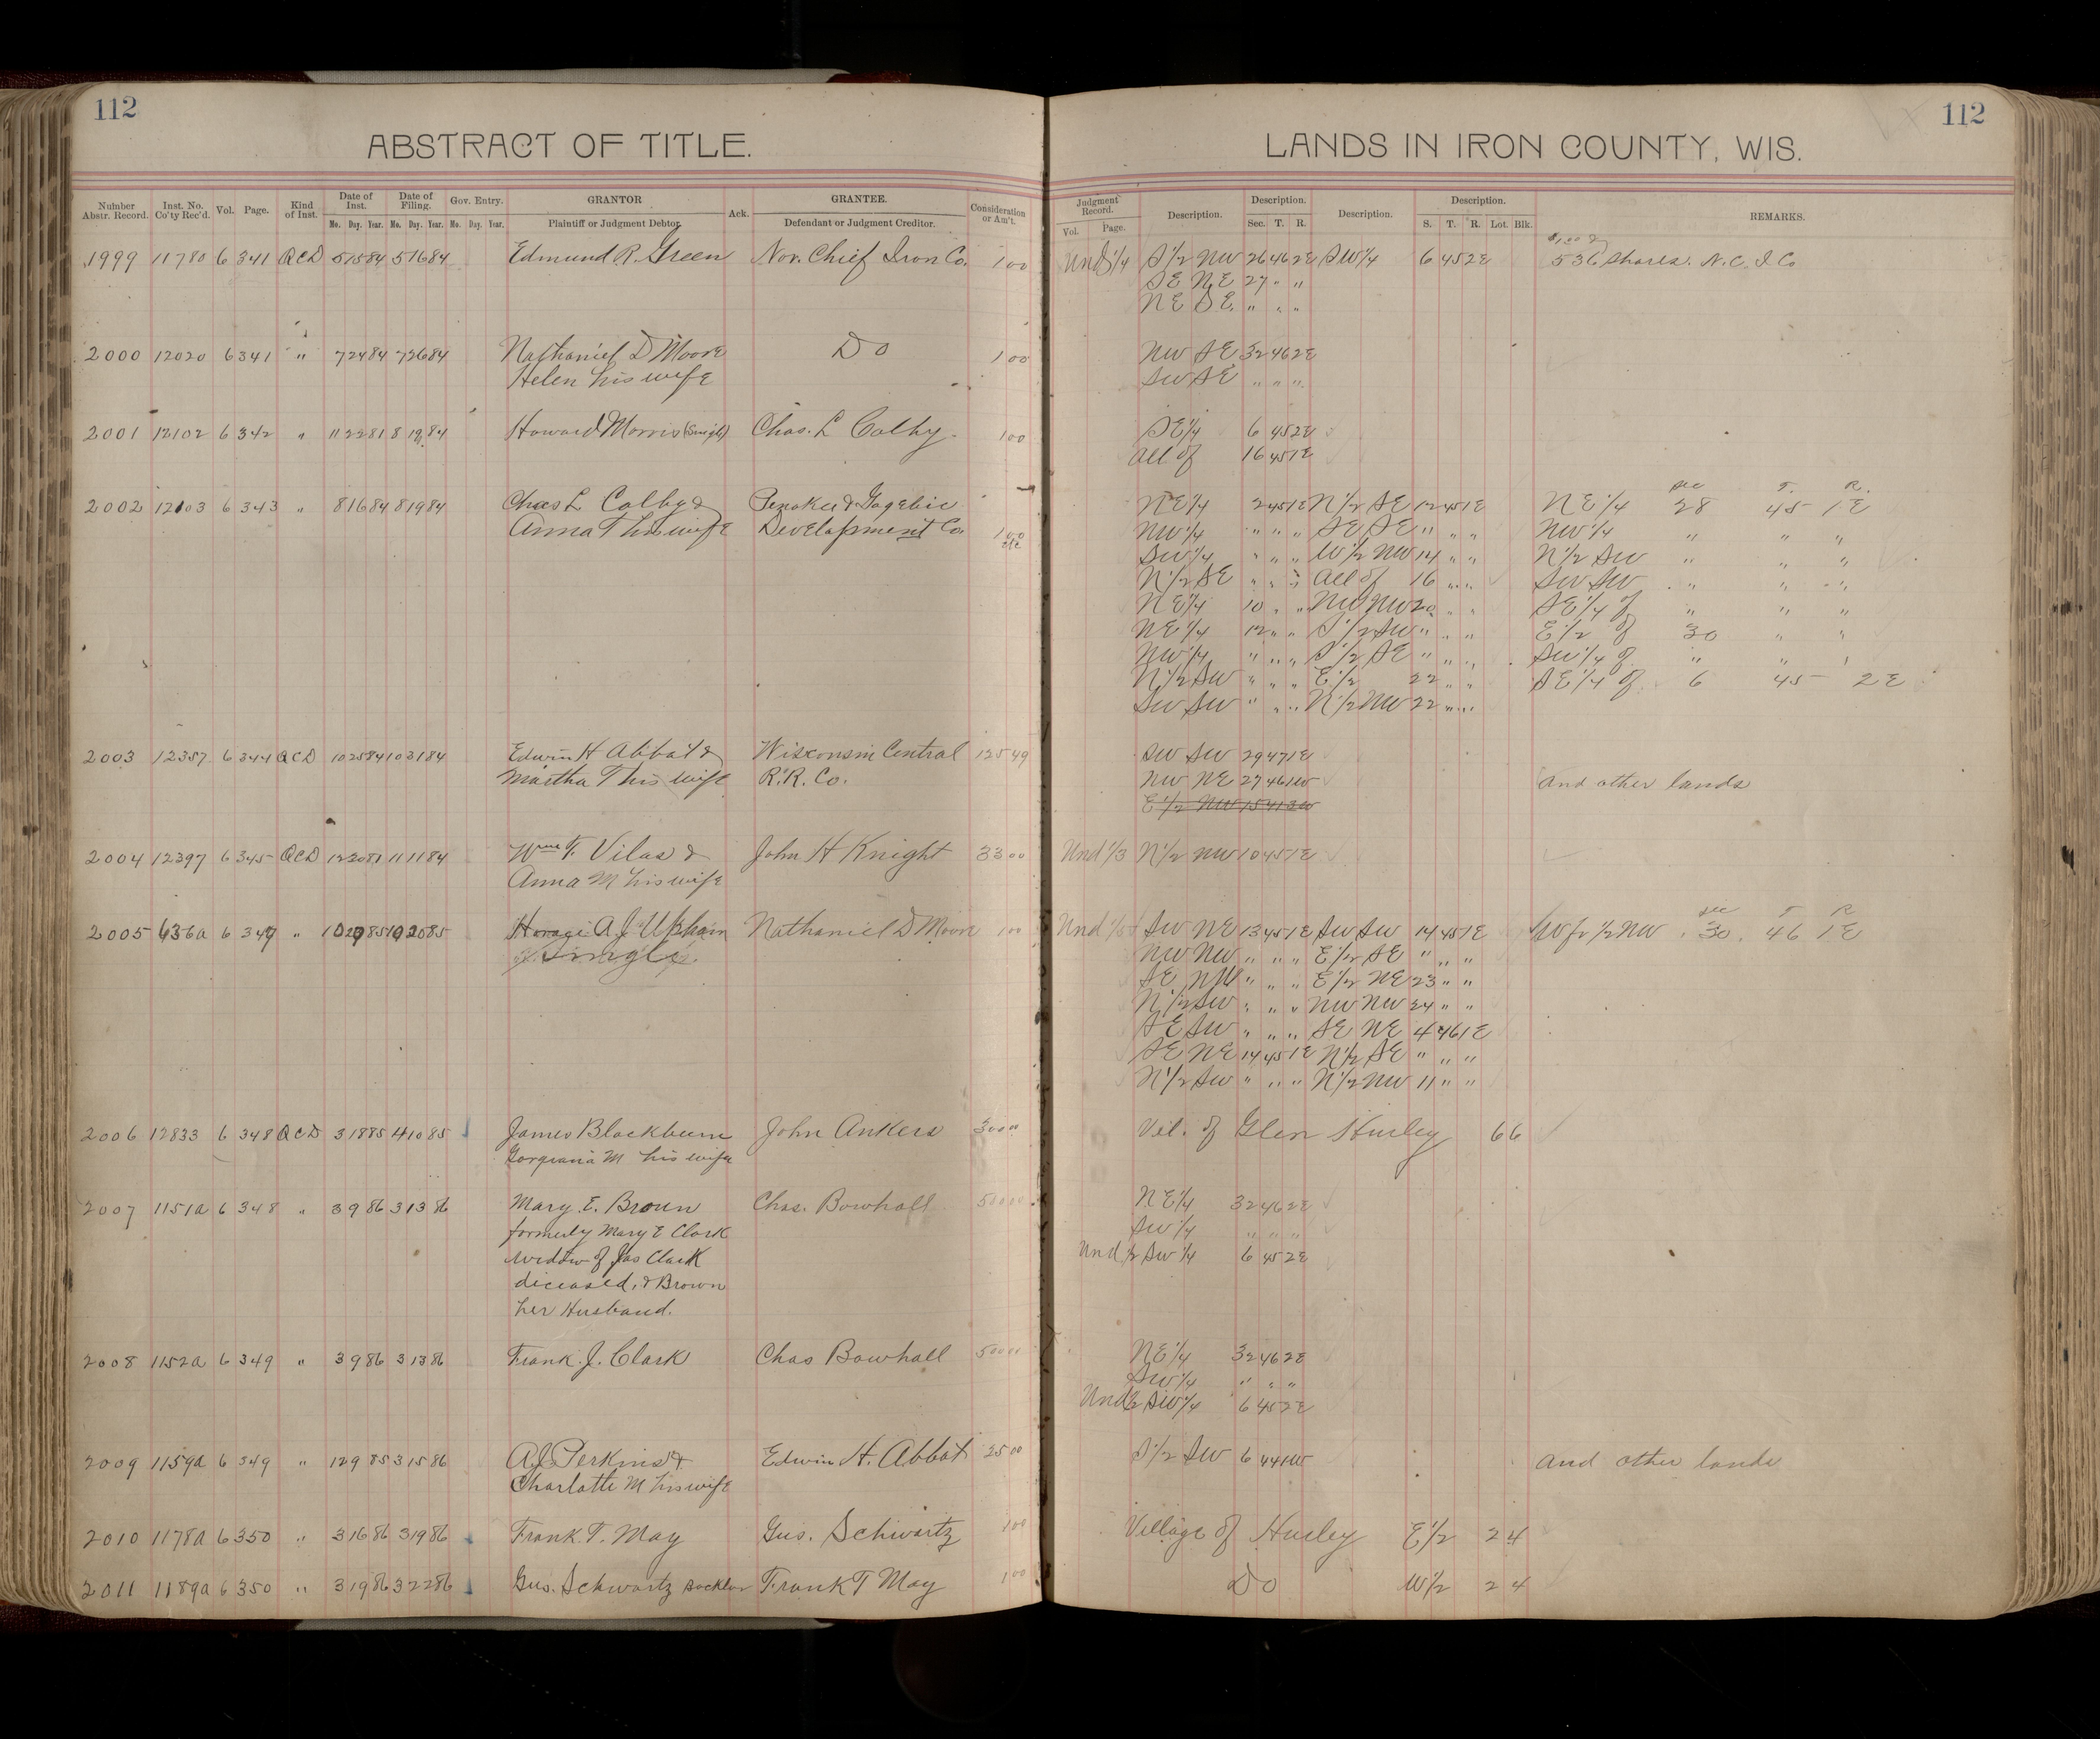 112
ABSTRACT OF TITLE.
Number Abstr. Record. Inst. No. Co'ty Rec'd. Vol. Page. Kind of Inst. Date of Inst. Date of Filing. Gov. Entry. GRANTOR Ack. GRANTEE. Consideration or Am't.
Mo. Day. Year. Mo. Day. Year. Mo. Day. Year. Plaintiff or Judgment Debtor. Defendant or Judgment Creditor.
1999 11780 6 341 QCD 5 15 84 5 16 84 Edmund R. Green Nor. Chief Iron Co. 1 00
2000 12020 6 341 " 7 24 84 7 26 84 Nathaniel D Moore Do 1 00
Helen his wife
2001 12102 6 342 " 11 22 81 8 19 84 Howard Morris (Single) Chas. L Colby 1 00
2002 12103 6 343 " 8 16 84 8 19 84 Chas L Colby & Penokee & Gogebic
Anna T his wife Development Co 1 00
etc
2003 12357 6 344 QCD 10 25 84 10 31 84 Edwin H Abbot & Wisconsin Central 125 49
Martha T his wife R.R. Co.
2004 12397 6 345 QCD 12 20 81 11 11 84 Wm F. Vilas & John H Knight 33 00
Anna M his wife
2005 636a 6 347 " 10 20 85 Horace A J Upham Nathaniel D Moore 1 00
Single
2006 12833 6 348 QCD 3 18 85 4 10 85 James Blackburn John Ankers 300 00
Gorgiana M his wife
2007 1151a 6 348 " 3 9 86 3 13 86 Mary. E. Brown Chas. Bowhall 500 00
formerly Mary E Clark
widow of Jas Clark
diceased, & Brown
her Husband.
2008 1152a 6 349 " 3 9 86 3 13 86 Frank. J. Clark Chas Bowhall 500 00
2009 1159a 6 349 " 12 9 85 3 15 86 A.J. Perkins & Edwin H. Abbot 25 00
Charlotte M his wife
2010 1178a 6 350 " 3 16 86 3 19 86 Frank. T. May Gus. Schwartz 1 00
2011 1189a 6 350 " 3 19 86 3 22 86 Gus. Schwartz Frank T May 1 00
112
LANDS IN IRON COUNTY, WIS.
Judgment Record. Description. Description. Description. Description. REMARKS.
Vol. Page. Sec. T. R. S. T. R. Lot. Blk.
$1.00 &
Und 1/4 S 1/2 NW 26 46 2E SW 1/4 6 45 2E 536 Shares. N. C. I Co
SE NE 27 " "
NE SE " " "
NW SE 32 46 2E
SW SE " " "
SE 1/4 6 45 2E
all of 16 45 1E
Sec T. R.
NE 1/4 2 45 1E N 1/2 SE 12 45 1E NE 1/4 28 45 1E
NW 1/4 " " " SE SE " " " NW 1/4 " " "
SW 1/4 " " " W 1/2 NW 14 " " N 1/2 SW " " "
N 1/2 SE " " " all of 16 " " SW SW " " "
NE 1/4 10 " " NW NW 20 " " SE 1/4 of " " "
NE 1/4 12 " " S 1/2 SW " " " E 1/2 of 30 " "
NW 1/4 " " " S 1/2 SE " " " SW 1/4 of " " "
N 1/2 SW " " " E 1/2 22 " " SE 1/4 of 6 45 2E
SW SW " " " N 1/2 NW 22 " "
SW SW 29 47 1E
NW NE 27 46 1W and other lands
E 1/2 NW 15 41 3W
Und 1/3 N 1/2 NW 10 45 1E
Sec T R
Und 1/5 SW NE 13 45 1E SW SW 14 45 1E W fr 1/2 NW 30 46 1E
NW NW " " " E 1/2 SE " " "
SE NW " " " E 1/2 NE 23 " "
N 1/2 SW " " " NW NW 24 " "
SE SW " " " SE NE 4 46 1E
SE NE 14 45 1E N 1/2 SE " " "
N 1/2 SW " " " N 1/2 NW 11 " "
Vil. of Glen Hurley 6 6
NE 1/4 32 46 2E
SW 1/4 " " "
Und 1/2 SW 1/4 6 45 2E
NE 1/4 32 46 2E
SW 1/4 " " "
Und 1/2 SW 1/4 6 45 2E
S 1/2 SW 6 44 1W and other lands
Village of Hurley E 1/2 2 4
Do W 1/2 2 4